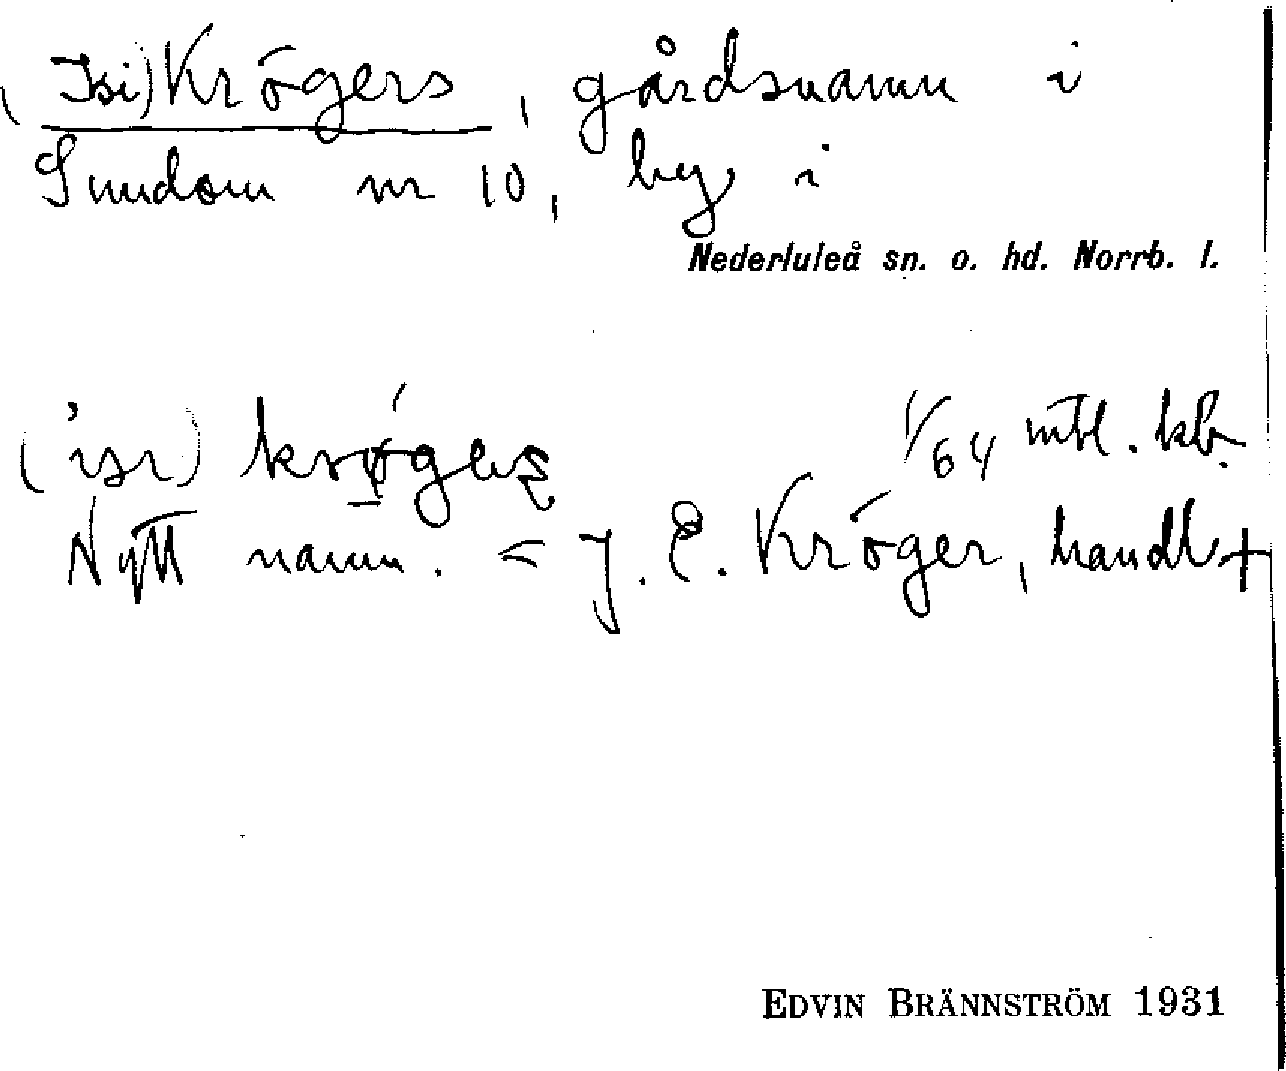 (Isi) Krögers, gårdsnamn i
Sundom nr 10, by i
Nederluleå sn. o. hd. Norrb. l.
1/64 mtl. kb.
Nytt namn. = J. E. Kröger, handl. +
EDVIN BRÄNNSTRÖM 1931